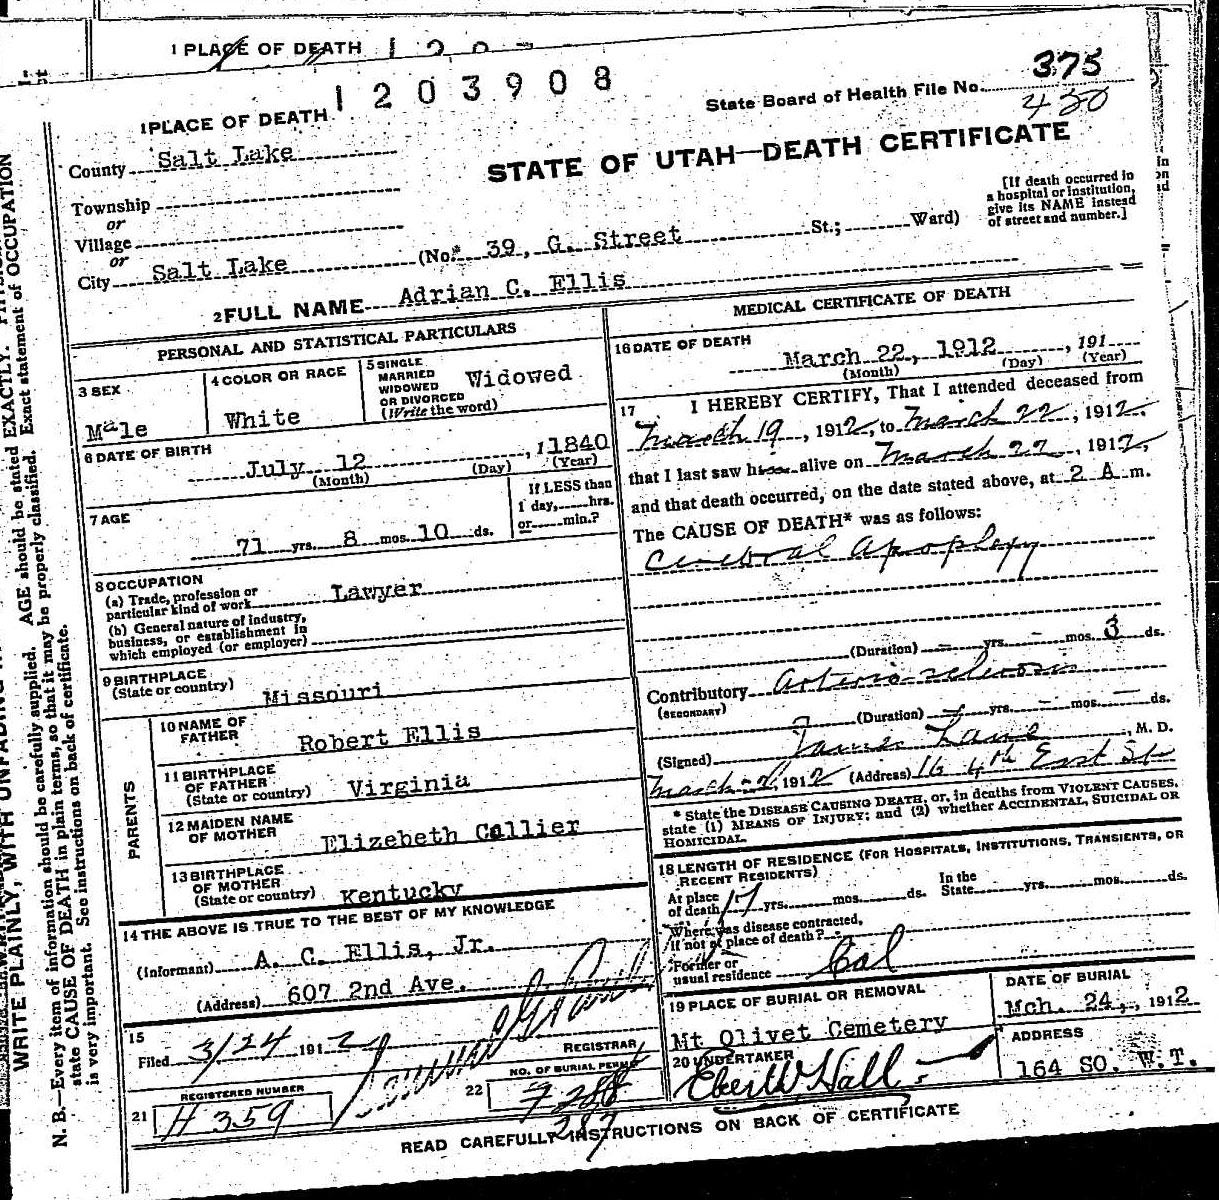 1 PLACE OF DEATH
1203908
375
State Board of Health File No.
430
1 PLACE OF DEATH
County Salt Lake
STATE OF UTAH—DEATH CERTIFICATE
Township
or
Village
or
City Salt Lake (No. 39, G. Street St.; Ward)
[If death occurred in
a hospital or institution,
give its NAME instead
of street and number.]
2 FULL NAME Adrian C. Ellis
PERSONAL AND STATISTICAL PARTICULARS
3 SEX
Male
4 COLOR OR RACE
White
5 SINGLE
MARRIED
WIDOWED
OR DIVORCED
(Write the word)
Widowed
6 DATE OF BIRTH
July 12, 1840
(Month) (Day) (Year)
7 AGE
71 yrs. 8 mos. 10 ds.
If LESS than
1 day, hrs.
or min.?
8 OCCUPATION
(a) Trade, profession or
particular kind of work Lawyer
(b) General nature of industry,
business, or establishment in
which employed (or employer)
9 BIRTHPLACE
(State or country) Missouri
PARENTS
10 NAME OF
FATHER Robert Ellis
11 BIRTHPLACE
OF FATHER
(State or country) Virginia
12 MAIDEN NAME
OF MOTHER Elizebeth Collier
13 BIRTHPLACE
OF MOTHER
(State or country) Kentucky
14 THE ABOVE IS TRUE TO THE BEST OF MY KNOWLEDGE
(Informant) A. C. Ellis, Jr.
(Address) 607 2nd Ave.
15
Filed 3/24 1912
REGISTRAR
REGISTERED NUMBER
21 H 359
NO. OF BURIAL PERMIT
22
287
MEDICAL CERTIFICATE OF DEATH
16 DATE OF DEATH
March 22, 1912, 191
(Month) (Day) (Year)
17 I HEREBY CERTIFY, That I attended deceased from
March 19, 1912, to March 22, 1912,
that I last saw him alive on March 22, 1912,
and that death occurred, on the date stated above, at 2 A m.
The CAUSE OF DEATH* was as follows:
Cerebral Apoplexy
(Duration) - yrs. - mos. 3 ds.
Contributory Arterio-sclerosis
(SECONDARY)
(Duration) yrs. - mos. - ds.
(Signed) M. D.
March 1912 (Address) 16 4th East St
* State the DISEASE CAUSING DEATH, or, in deaths from VIOLENT CAUSES,
state (1) MEANS OF INJURY; and (2) whether ACCIDENTAL, SUICIDAL OR
HOMICIDAL.
18 LENGTH OF RESIDENCE (FOR HOSPITALS, INSTITUTIONS, TRANSIENTS, OR
RECENT RESIDENTS)
At place
of death 17 yrs. mos. ds.
In the
State yrs. mos. ds.
Where was disease contracted,
if not at place of death?
Former or
usual residence Cal
19 PLACE OF BURIAL OR REMOVAL
Mt Olivet Cemetery
DATE OF BURIAL
Mch. 24, 1912
20 UNDERTAKER
Eber W Hall
ADDRESS
164 SO. W. T.
READ CAREFULLY INSTRUCTIONS ON BACK OF CERTIFICATE
WRITE PLAINLY, WITH UNFADING
N. B.—Every item of information should be carefully supplied. AGE should be stated EXACTLY.
state CAUSE OF DEATH in plain terms, so that it may be properly classified. Exact statement of OCCUPATION
is very important. See instructions on back of certificate.